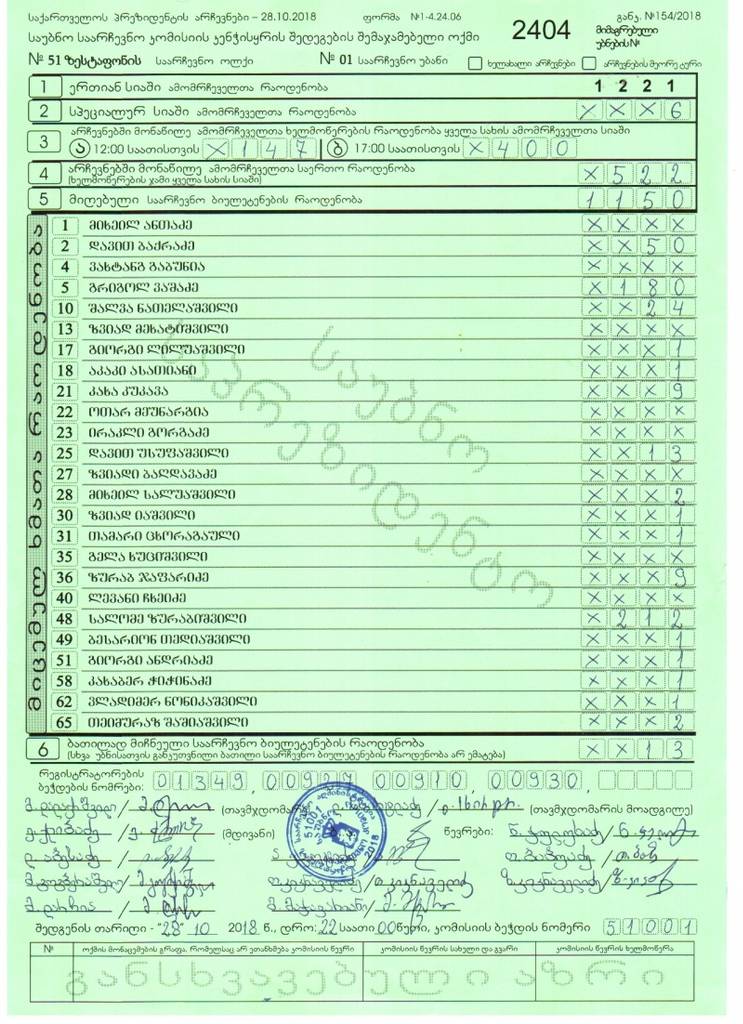 საქართველოს პრეზიდენტის არჩევნები – 28.10.2018 ფორმა №1-4.24.06 განკ. №154/2018
საუბნო საარჩევნო კომისიის კენჭისყრის შედეგების შემაჯამებელი ოქმი 2404 მიმაგრებული უბნების №
№ 51 ზესტაფონის საარჩევნო ოლქი № 01 საარჩევნო უბანი ხელახალი არჩევნები არჩევნების მეორე ტური
1 ერთიან სიაში ამომრჩეველთა რაოდენობა 1 2 2 1
2 სპეციალურ სიაში ამომრჩეველთა რაოდენობა X X X 6
3 არჩევნებში მონაწილე ამომრჩეველთა ხელმოწერების რაოდენობა ყველა სახის ამომრჩეველთა სიაში
ა 12:00 საათისთვის X 1 4 7 ბ 17:00 საათისთვის X 4 0 0
4 არჩევნებში მონაწილე ამომრჩეველთა საერთო რაოდენობა X 5 2 2
(ხელმოწერების ჯამი ყველა სახის სიაში)
5 მიღებული საარჩევნო ბიულეტენების რაოდენობა 1 1 5 0
მიცემულ ხმათა რაოდენობა
1 მიხეილ ანთაძე X X X X
2 დავით ბაქრაძე X X 5 0
4 ვახტანგ გაბუნია X X X X
5 გრიგოლ ვაშაძე X 1 8 0
10 შალვა ნათელაშვილი X X 2 4
13 ზვიად მეხატიშვილი X X X X
17 გიორგი ლილუაშვილი X X X 1
18 აკაკი ასათიანი X X X 1
21 კახა კუკავა X X X 9
22 ოთარ მეუნარგია X X X X
23 ირაკლი გორგაძე X X X X
25 დავით უსუფაშვილი X X 1 3
27 ზვიადი ბაღდავაძე X X X X
28 მიხეილ სალუაშვილი X X X 2
30 ზვიად იაშვილი X X X 1
31 თამარი ცხორაგაული X X X 1
35 გელა ხუციშვილი X X X X
36 ზურაბ ჯაფარიძე X X X 9
40 ლევანი ჩხეიძე X X X X
48 სალომე ზურაბიშვილი X 2 1 2
49 ბესარიონ თედიაშვილი X X X 1
51 გიორგი ანდრიაძე X X X 1
58 კახაბერ ჭიჭინაძე X X X 1
62 ვლადიმერ ნონიკაშვილი X X X 1
65 თეიმურაზ შაშიაშვილი X X X 2
საუბნო
საპრეზიდენტო
6 ბათილად მიჩნეული საარჩევნო ბიულეტენების რაოდენობა X X 1 3
(სხვა უბნისათვის განკუთვნილი ბათილი საარჩევნო ბიულეტენების რაოდენობა არ ემატება)
რეგისტრატორების
ბეჭდების ნომრები: 01349 00927 00910 00930
(თავმჯდომარე) (თავმჯდომარის მოადგილე)
(მდივანი) წევრები:
შედგენის თარიღი - "28" 10 2018 წ., დრო: 22 საათი 00 წუთი, კომისიის ბეჭდის ნომერი 51001
№ ოქმის მონაცემების გრაფა, რომელსაც არ ეთანხმება კომისიის წევრი კომისიის წევრის სახელი და გვარი კომისიის წევრის ხელმოწერა
განსხვავებული აზრი